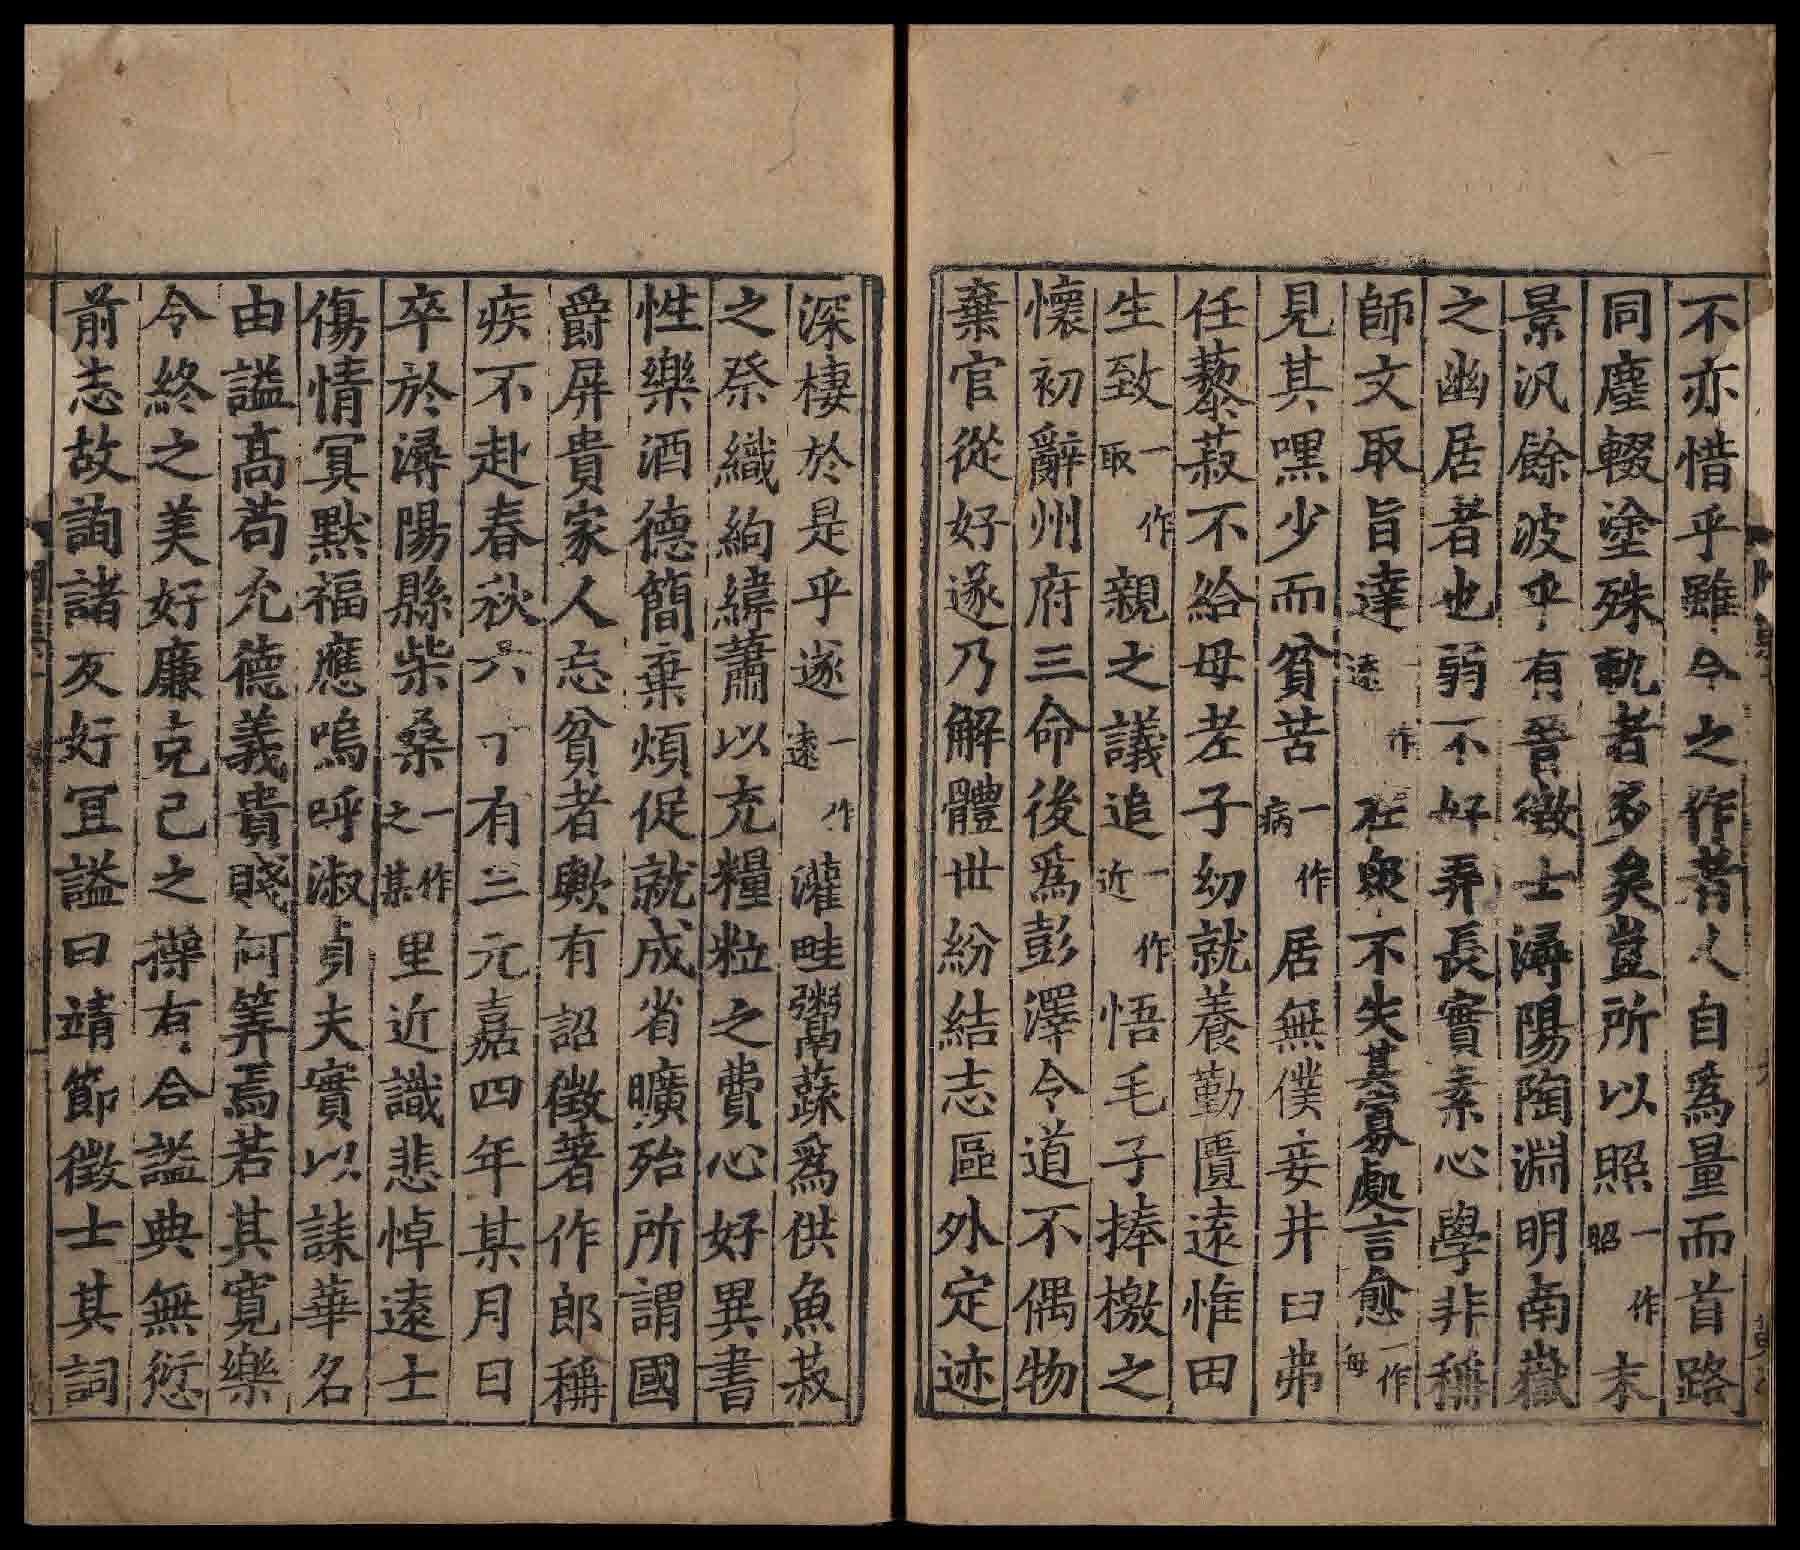 不亦惜乎雖今之作者人自為量而首路
同塵輟塗殊軌者多矣豈所以照一作昭末
景汎餘波乎有晉徵士潯陽陶淵明南嶽
之幽居者也弱不好弄長實素心學非稱
師文取旨達一作遠在眾不失其寡處言愈一作每
見其嘿少而貧苦一作病居無僕妾井臼弗
任藜菽不給母老子幼就養勤匱遠惟田
生致一作取親之議追一作近悟毛子捧檄之
懷初辭州府三命後為彭澤令道不偶物
棄官從好遂乃解體世紛結志區外定迹
深棲於是乎遂一作遠灌畦鬻蔬為供魚菽
之祭織絇緯蕭以充糧粒之費心好異書
性樂酒德簡棄煩促就成省曠殆所謂國
爵屏貴家人忘貧者歟有詔徵著作郎稱
疾不赴春秋六十有三元嘉四年某月日
卒於潯陽縣柴桑一作之某里近識悲悼遠士
傷情冥默福應嗚呼淑貞夫實以誄華名
由謚高苟允德義貴賤何筭焉若其寬樂
令終之美好廉克己之操有合謚典無愆
前志故詢諸友好宜謚曰靖節徵士其詞